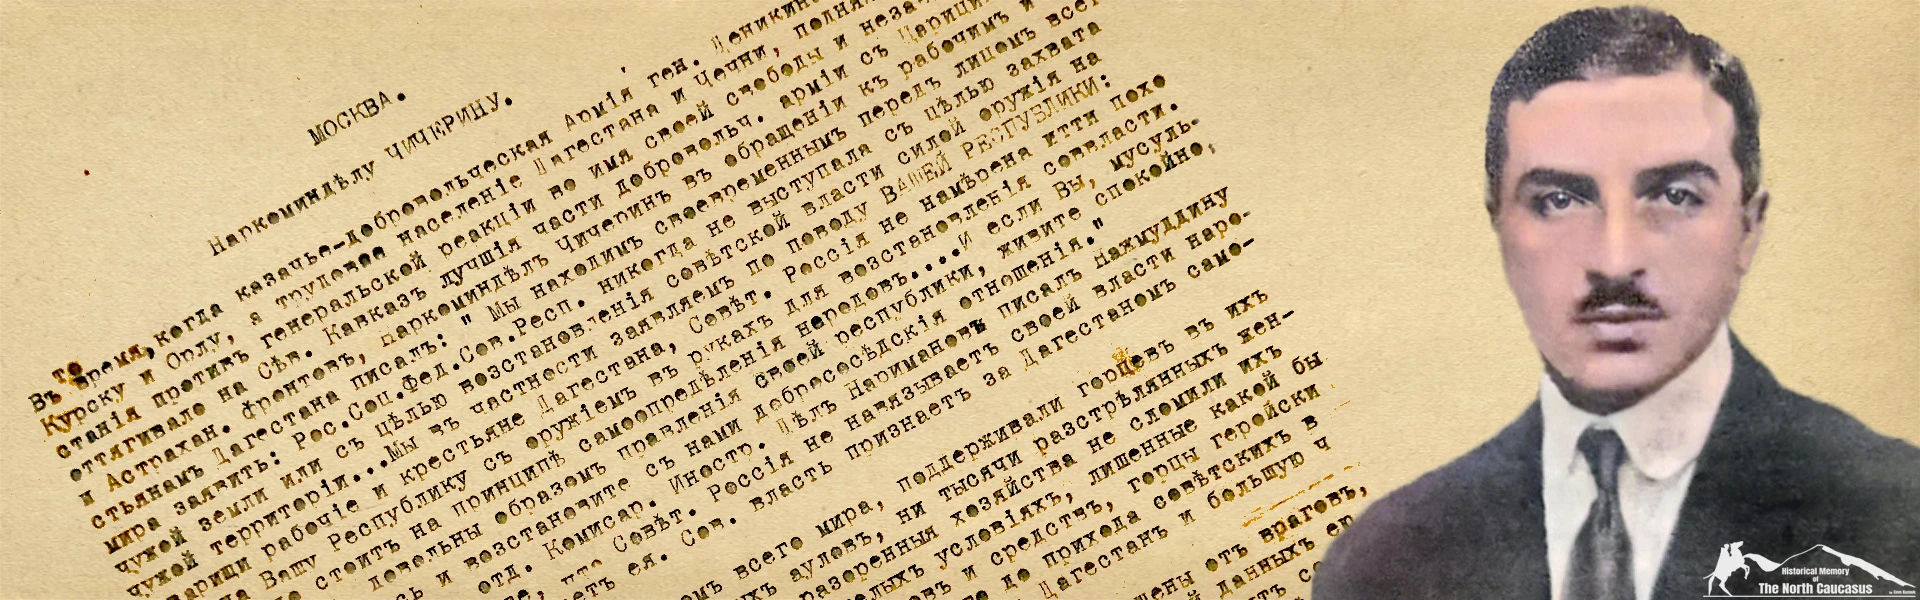 МОСКВА.
Наркоминдѣлу ЧИЧЕРИНУ.
Въ то время, когда казачье-добровольческая Армія ген. Деникина
Курску и Орлу, а трудовое населеніе Дагестана и Чечни,
станія противъ генеральской реакціи во имя своей свободы и
оттягивало на Сѣв. Кавказъ лучшія части добровольч. арміи съ
и Астрахан. фронтовъ, наркоминдѣлъ Чичеринъ въ обращеніи къ рабочимъ и
стьянамъ Дагестана писалъ: " Мы находимъ своевременнымъ передъ лицомъ всего
мира заявить: Рос.Соц.Фед.Сов.Респ. никогда не выступала съ цѣлью захвата
чужой земли или съ цѣлью возстановленія совѣтской власти силой оружія на
чужой территоріи...Мы въ частности заявляемъ по поводу ВАШЕЙ РЕСПУБЛИКИ:
варищи рабочіе и крестьяне Дагестана, Совѣт. Россія не намѣрена итти похо
Вашу Республику съ оружіемъ въ рукахъ для возстановленія соввласти.
стоитъ на принципѣ самоопредѣленія народовъ....И если Вы, мусуль-
довольны образомъ правленія своей республики, живите спокойно,
и возстановите съ нами добрососѣдскія отношенія."
отд. Комисар. Иностр. Дѣлъ Наримановъ писалъ Нажмуддину
что Совѣт. Россія не навязываетъ своей власти наро-
ея. Сов. власть признаетъ за Дагестаномъ само-
всего мира, поддерживали горцевъ въ ихъ
ауловъ, ни тысячи разстрѣлянныхъ жен-
разоренныя хозяйства не сломили ихъ
условіяхъ, лишенные какой бы
и средствъ, горцы геройски
до прихода совѣтскихъ в
Дагестанъ и большую ч
отъ враговъ,
данныхъ
Historical Memory
of
The North Caucasus